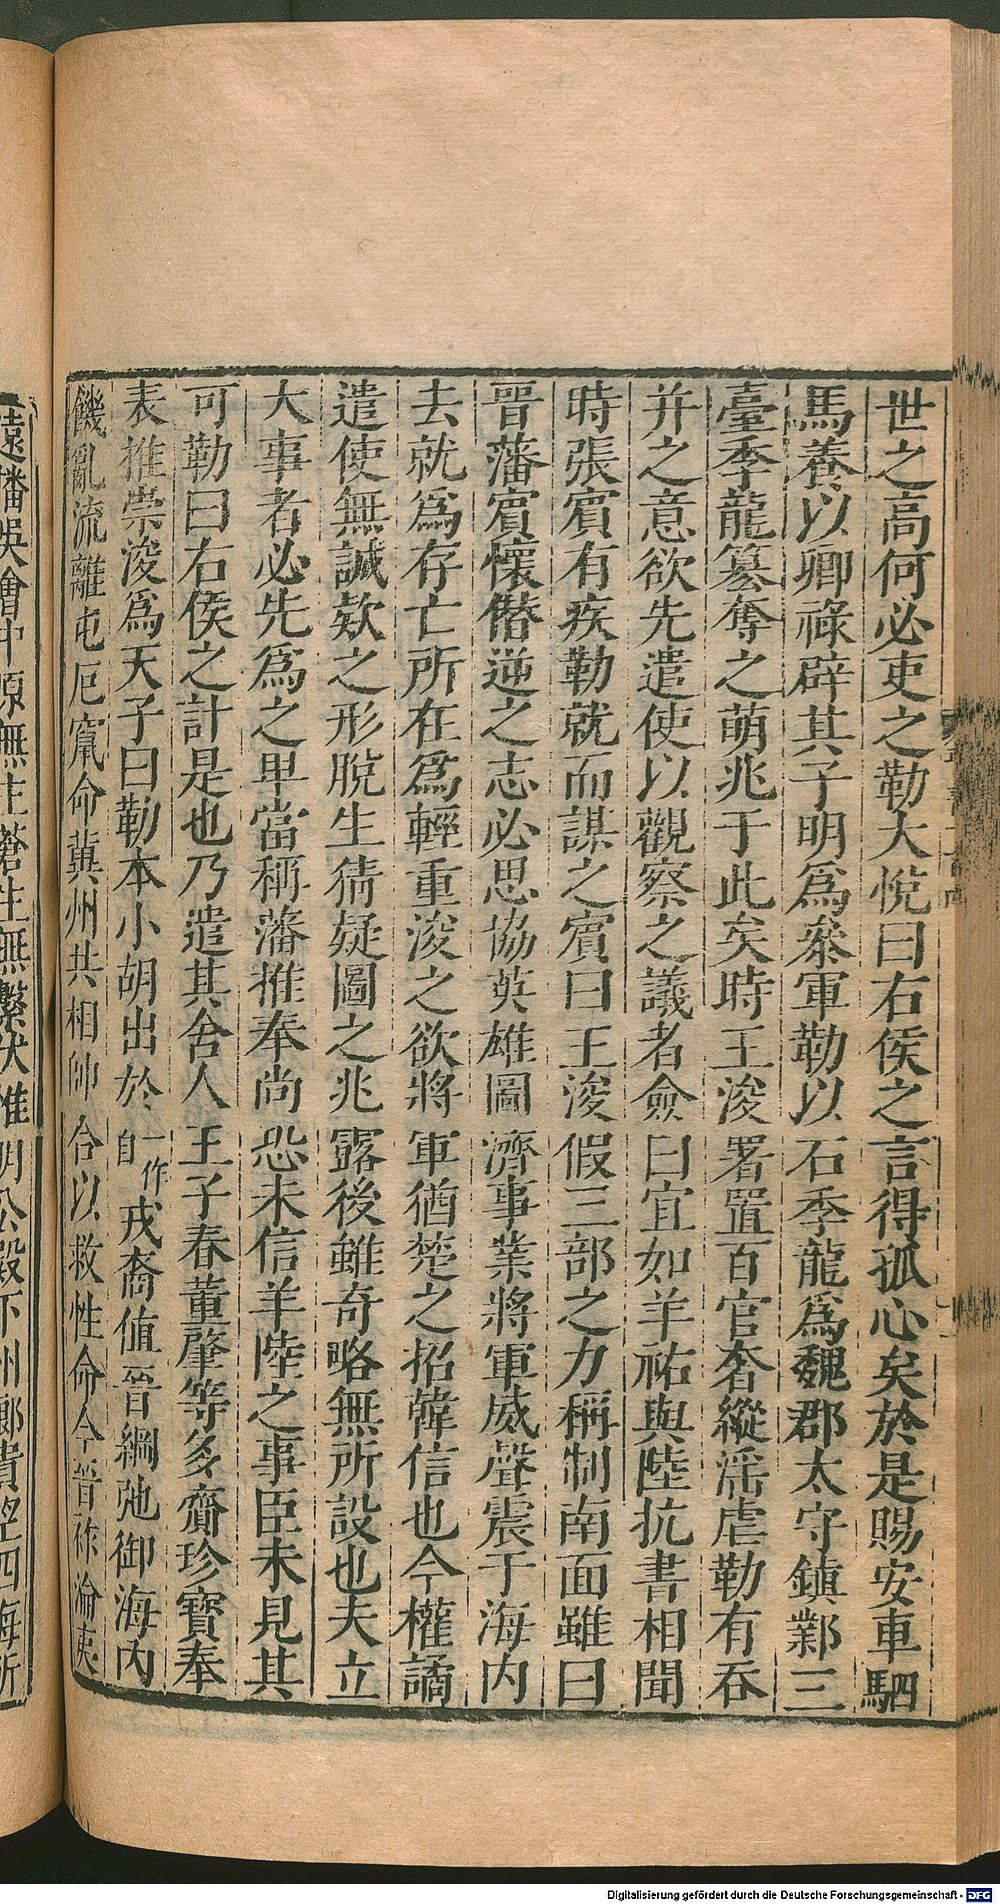 世之高何必吏之勒大悅曰右侯之言得孤心矣於是賜安車駟
馬養以卿祿辟其子明爲叅軍勒以石季龍爲魏郡太守鎮鄴三
臺季龍篡奪之萌兆于此矣時王浚署置百官奢縱淫虐勒有吞
并之意欲先遣使以觀察之議者僉曰宜如羊祐與陸抗書相聞
時張賓有疾勒就而謀之賓曰王浚假三部之力稱制南面雖曰
晉藩實懷僭逆之志必思協英雄圖濟事業將軍威聲震于海内
去就爲存亡所在爲輕重浚之欲將軍猶楚之招韓信也今權譎
遣使無誠欵之形脫生猜疑圖之兆露後雖奇略無所設也夫立
大事者必先爲之卑當稱藩推奉尚恐未信羊陸之事臣未見其
可勒曰右侯之計是也乃遣其舍人王子春董肇等多齎珍寶奉
表推崇浚爲天子曰勒本小胡出於一作自戎裔值晉綱弛御海内
饑亂流離屯厄竄命冀州共相帥合以救性命今晉祚淪夷
遠播吳會中原無主蒼生無繫伏惟明公殿下州鄉貴望四海所
Digitalisierung gefördert durch die Deutsche Forschungsgemeinschaft - DFG